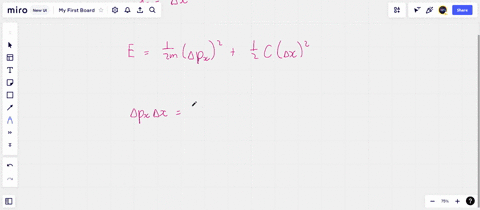 miro New UI My First Board Share
Δx
E = 1/2m (Δpx)² + 1/2 C (Δx)²
Δpx Δx =
75%